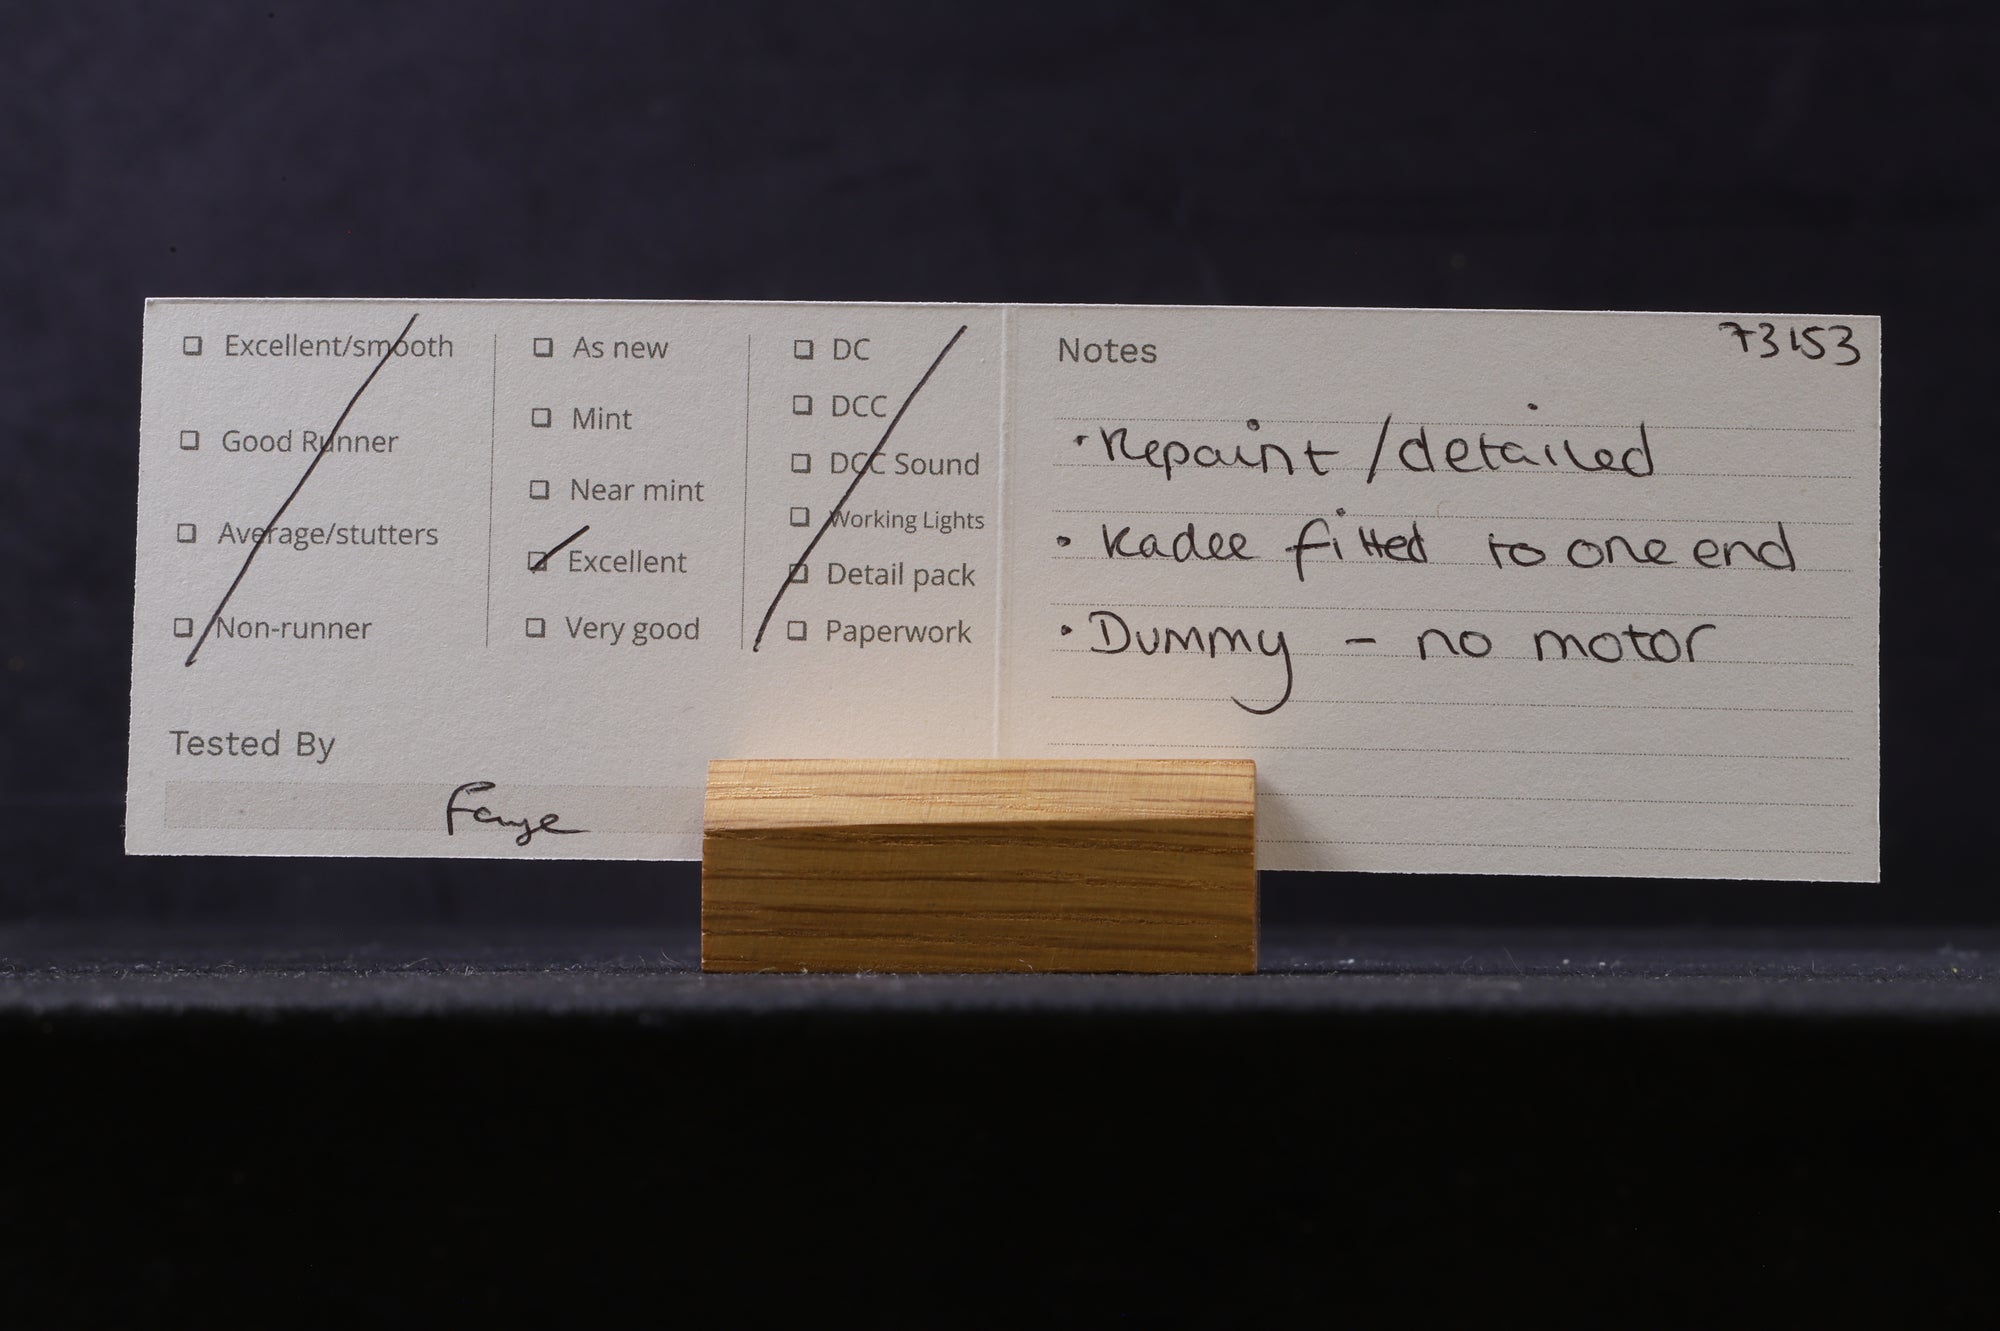 Excellent/smooth
Good Runner
Average/stutters
Non-runner
As new
Mint
Near mint
Excellent
Very good
DC
DCC
DCC Sound
Working Lights
Detail pack
Paperwork
Tested By
Faye
Notes
73153
• Repaint / detailed
• Kadee fitted to one end
• Dummy - no motor